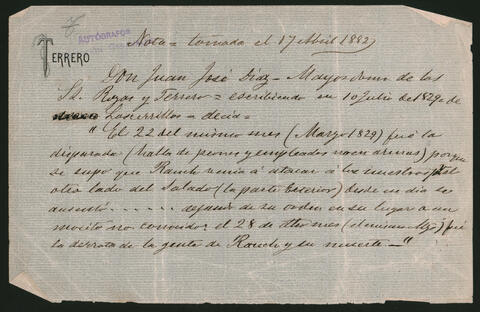 AUTÓGRAFOS
TERRERO
Nota = tomada el 17 Abril 1882
Don Juan José Diaz = Mayordomo de los
Sres. Rozas y Terrero = escribiendo en 10 Julio de 1829 = de
Los Cerrillos = decia =
"El 22 del mismo mes (Marzo 1829) fué la
disparada (habla de peones y empleados
se supo que Rauch venia á atacar á los nuestros al
otro lado del Salado (la parte Exterior) desde ese dia se
ausentó ...... dejando de su orden en su lugar a un
mocito no conocido: el 28 de dho mes (el mismo Mzo) fué
la derrota de la gente de Rauch y su muerte ="